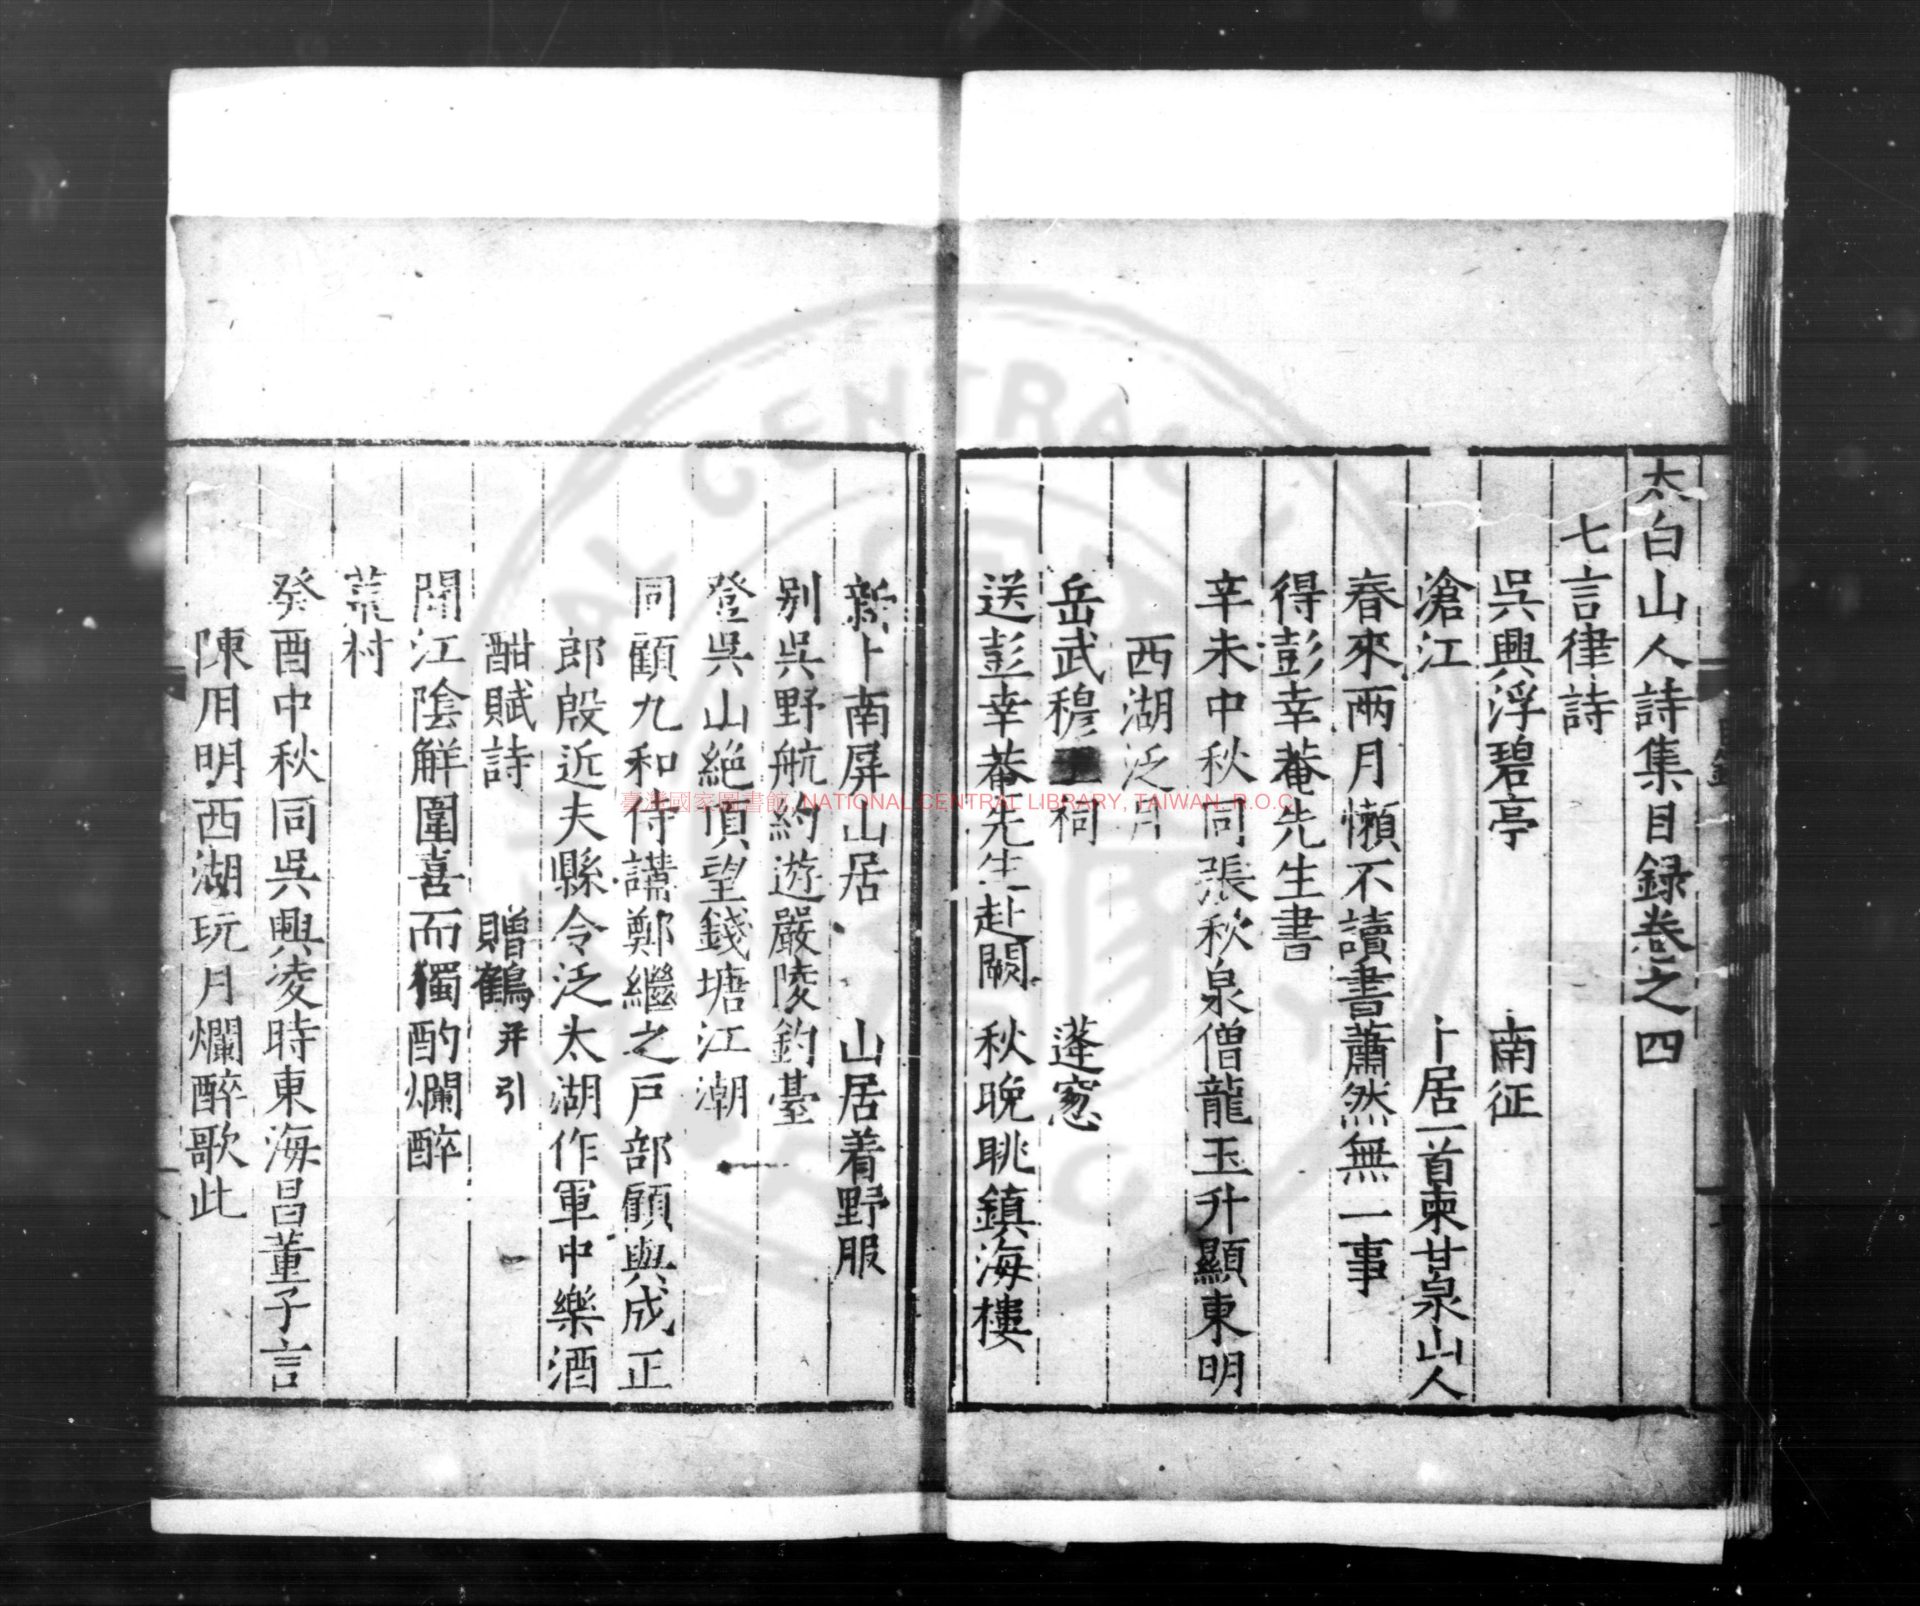 太白山人詩集目録卷之四
七言律詩
吳興浮碧亭 南征
滄江 卜居一首柬甘泉山人
春來兩月懶不讀書蕭然無一事
得彭幸菴先生書
辛未中秋同張秋泉僧龍玉升顯東明
西湖泛月
岳武穆王祠 蓬窓
送彭幸菴先生赴闕 秋晚眺鎮海樓
新卜南屏山居 山居着野服
别吳野航約遊嚴陵釣臺
登吳山絶頂望錢塘江潮
同顧九和侍講鄭繼之戶部顧與成正
郎殷近夫縣令泛太湖作軍中樂酒
酣賦詩 贈鶴并引
聞江陰解圍喜而獨酌爛醉
荒村
癸酉中秋同吳興凌時東海昌董子言
陳用明西湖玩月爛醉歌此
目錄
臺灣國家圖書館, NATIONAL CENTRAL LIBRARY, TAIWAN, R.O.C